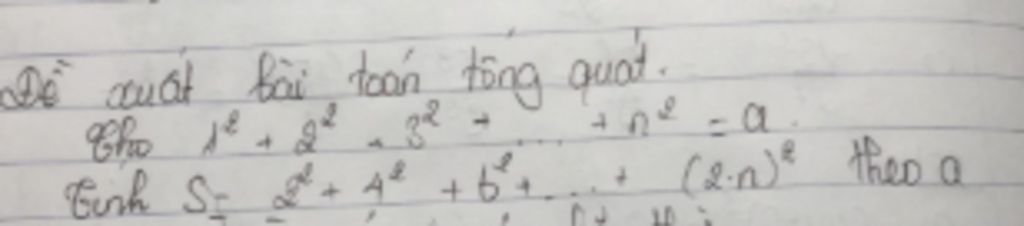 Đề xuất bài toán tổng quát.
Cho 1² + 2² + 3² + ... + n² = a.
Tính S = 2² + 4² + 6² + ... + (2.n)² theo a